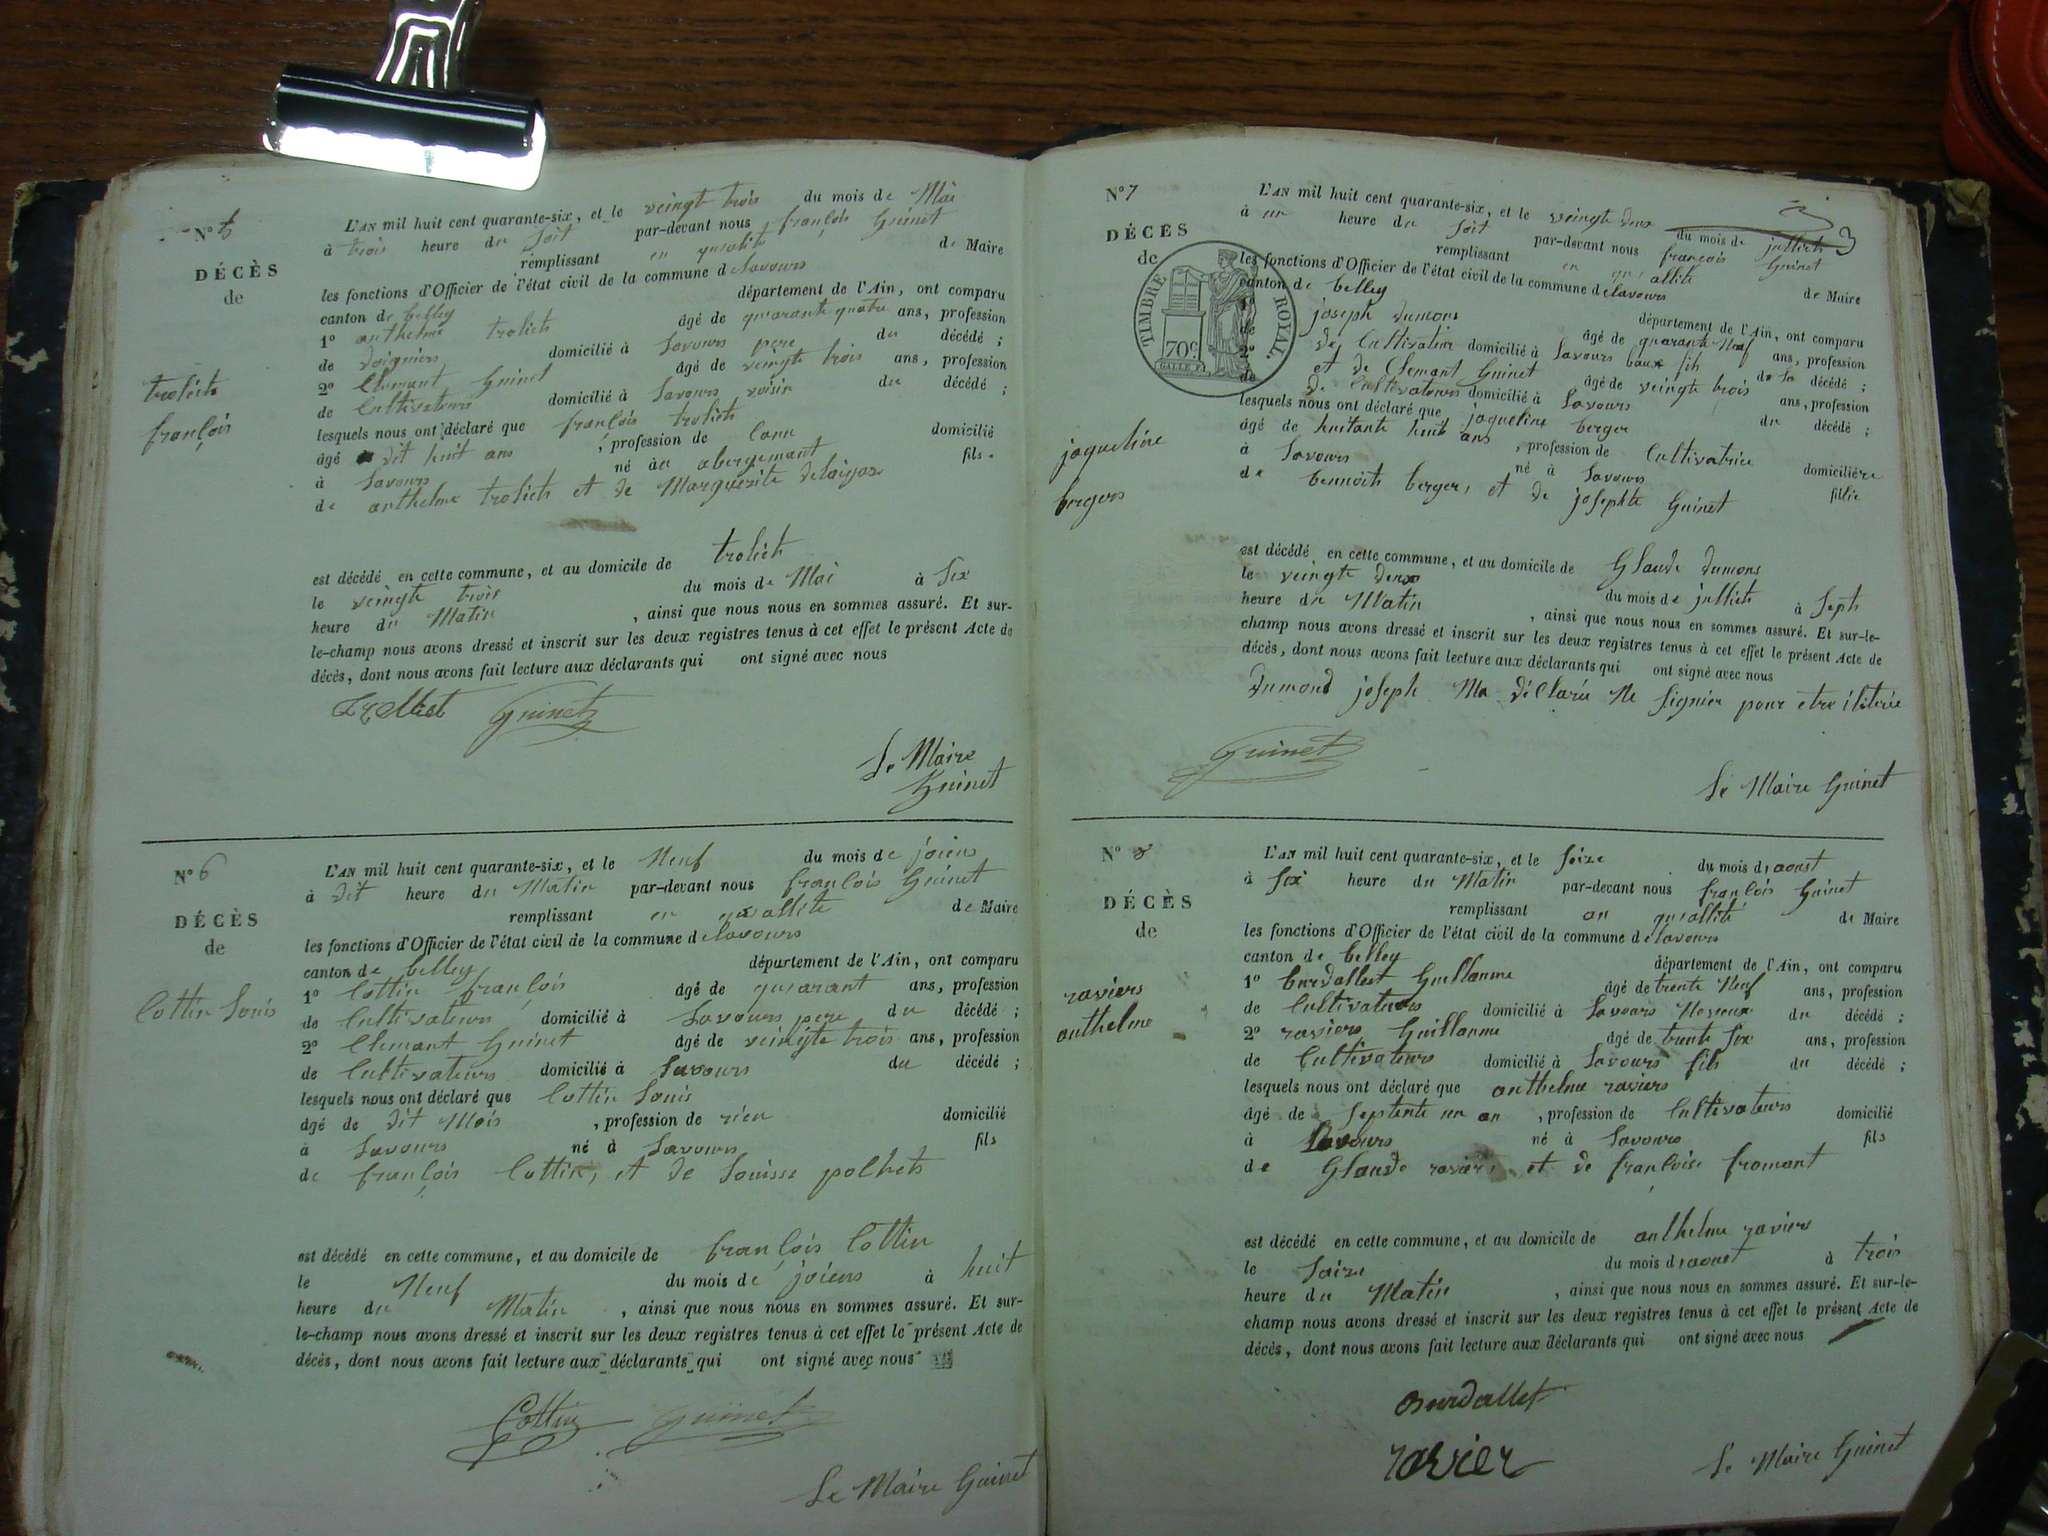 N° 5
DÉCÈS
de
troliets
françois
L'AN mil huit cent quarante-six, et le veingt trois du mois de Mai
à trois heure du soit par-devant nous françois Guinet
remplissant en qualité de Maire
les fonctions d'Officier de l'état civil de la commune de lavours
canton de belley département de l'Ain, ont comparu
1° anthelme troliets âgé de quarante quatre ans, profession
de domicilié à Lavours pere du décédé ;
2° Clemant Guinet âgé de veingte trois ans, profession
de Cultivateurs domicilié à Lavours voisin du décédé ;
lesquels nous ont déclaré que françois troliets
âgé dit huit ans , profession de domicilié
à Lavours né au abergemant fils
de anthelme troliets et de Marguerite
est décédé en cette commune, et au domicile de troliets
le veingte trois du mois de Mai à Six
heure du Matin , ainsi que nous nous en sommes assuré. Et sur-
le-champ nous avons dressé et inscrit sur les deux registres tenus à cet effet le présent Acte de
décès, dont nous avons fait lecture aux déclarants qui ont signé avec nous
Trolliet Guinet
Le Maire
Guinet
N° 6
DÉCÈS
de
Cottin Louis
L'AN mil huit cent quarante-six, et le Neuf du mois de joiens
à dit heure du Matin par-devant nous françois Guinet
remplissant en quallite de Maire
les fonctions d'Officier de l'état civil de la commune de lavours
canton de belley département de l'Ain, ont comparu
1° Cottin françois âgé de quarant ans, profession
de Cultivateurs domicilié à Lavours pere du décédé ;
2° Clemant Guinet âgé de veingte trois ans, profession
de Cultivateurs domicilié à Lavours du décédé ;
lesquels nous ont déclaré que Cottin Louis
âgé de dit Mois , profession de rien domicilié
à Lavours né à Lavours fils
de françois Cottin, et de Louisse polliets
est décédé en cette commune, et au domicile de françois Cottin
le Neuf du mois de joiens à huit
heure du Matin , ainsi que nous nous en sommes assuré. Et sur-
le-champ nous avons dressé et inscrit sur les deux registres tenus à cet effet le présent Acte de
décès, dont nous avons fait lecture aux déclarants qui ont signé avec nous
Cottin Guinet
Le Maire Guinet
N° 7
DÉCÈS
de
TIMBRE ROYAL.
70c
jaqueline
bergers
L'AN mil huit cent quarante-six, et le veingte deux du mois de julliets
à un heure du soit par-devant nous françois Guinet
remplissant en qu'allité de Maire
les fonctions d'Officier de l'état civil de la commune de lavours
canton de belley département de l'Ain, ont comparu
joseph dumons âgé de quarante Neuf ans, profession
de de Cultivateur domicilié à Lavours baux fils de la décédé ;
2° et de Clemant Guinet âgé de veingte trois ans, profession
de de Cultivateurs domicilié à Lavours du décédé ;
lesquels nous ont déclaré que jaqueline berger
âgé de huitante huit ans , profession de Cultivatrice domiciliére
à Lavours né à Lavours fillie
de bennoits berger, et de josephte Guinet
est décédé en cette commune, et au domicile de Glaude dumons
le veingte deux du mois de julliets à Septs
heure du Matin , ainsi que nous nous en sommes assuré. Et sur-le-
champ nous avons dressé et inscrit sur les deux registres tenus à cet effet le présent Acte de
décès, dont nous avons fait lecture aux déclarants qui ont signé avec nous
dumond joseph Ma déClarée Ne Signier pour etre iliterée
Guinet
Le Maire Guinet
N° 8
DÉCÈS
de
raviers
anthelme
L'AN mil huit cent quarante-six, et le Seize du mois d'aoust
à Six heure du Matin par-devant nous françois Guinet
remplissant an qu'allité de Maire
les fonctions d'Officier de l'état civil de la commune de lavours
canton de belley département de l'Ain, ont comparu
1° burdallest Guillaume âgé de trente Neuf ans, profession
de Cultivateurs domicilié à Lavours Neveux du décédé ;
2° raviers Guillaume âgé de trente Six ans, profession
de Cultivateurs domicilié à Lavours fils du décédé ;
lesquels nous ont déclaré que anthelme raviers
âgé de Septente un an , profession de Cultivateurs domicilié
à Lavours né à Lavours fils
de Glaude raviers et de françoise fromant
est décédé en cette commune, et au domicile de anthelme raviers
le Saize du mois d'aoust à trois
heure du Matin , ainsi que nous nous en sommes assuré. Et sur-le-
champ nous avons dressé et inscrit sur les deux registres tenus à cet effet le présent Acte de
décès, dont nous avons fait lecture aux déclarants qui ont signé avec nous
Burdallet
ravier
Le Maire Guinet